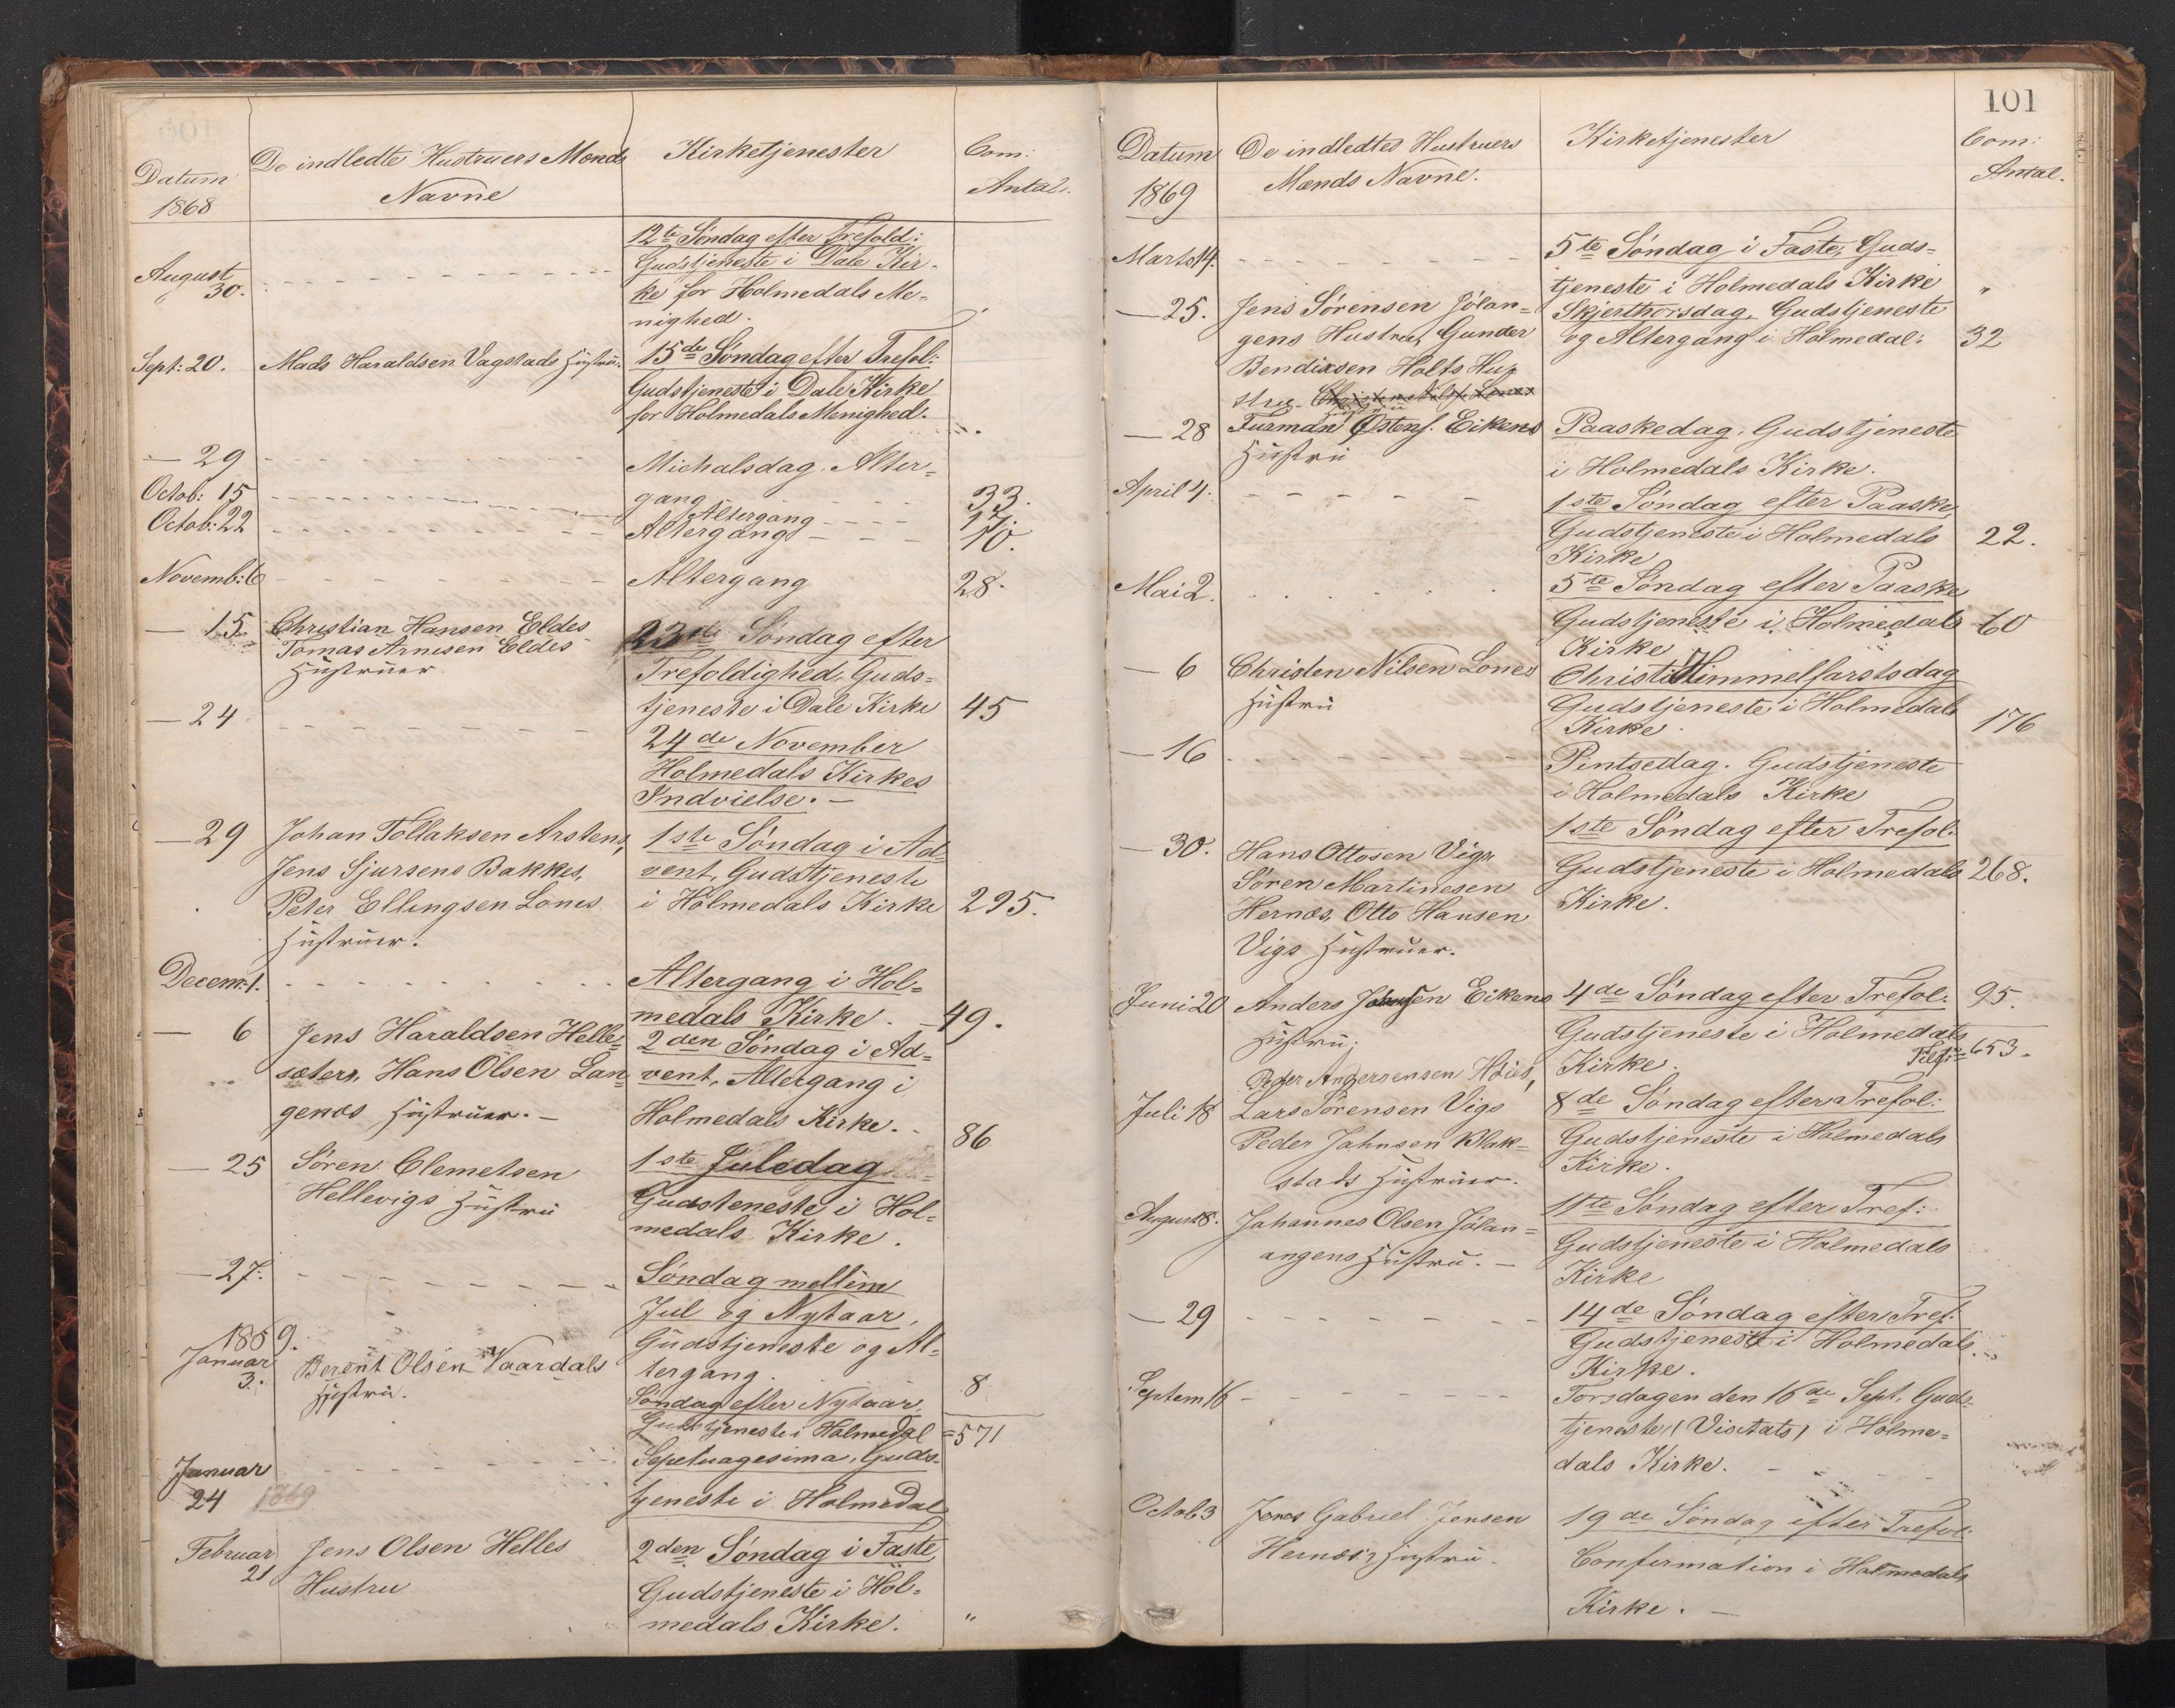 Datum
1868
De indledte Hustruers Mænds
Navne
Kirketjenester
Com:
Antal.
August
30.
12te Søndag efter Trefold:
Gudstjeneste i Dale Kir-
ke for Holmedals Me-
nighed.
Sept: 20.
Mads Haraldsen Vagstads Hustru.
15de Søndag efter Trefol:
Gudstjeneste i Dale Kirke
for Holmedals Menighed.
— 29
Michalsdag. Alter-
gang
33.
Octob: 15
Altergang
17.
Octob: 22
Altergang
10.
Novemb: 6
Altergang
28.
— 15
Christian Hansen Eldes
Tomas Arnesen Eldes
Hustruer
23de Søndag efter
Trefoldighed, Guds-
tjeneste i Dale Kirke
45
— 24
24de November
Holmedals Kirkes
Indvielse. —
— 29
Johan Tollaksen Arstens,
Jens Sjursens Bakkes,
Peter Ellingsen Lones
Hustruer.
1ste Søndag i Ad-
vent, Gudstjeneste
i Holmedals Kirke
295.
Decem: 1.
Altergang i Hol-
medals Kirke.
49.
— 6
Jens Haraldsen Helle-
sæters, Hans Olsen Lan-
genæs Hustruer. —
2den Søndag i Ad-
vent, Altergang i
Holmedals Kirke.
86
— 25
Søren Clemetsen
Hellevigs Hustru
1ste Juledag
Gudsteneste i Hol-
medals Kirke.
— 27.
Søndag mellem
Jul og Nytaar,
Gudstjeneste og Al-
tergang.
8
1869.
Januar
3.
Berent Olsen Vaardals
Hustru.
Søndag efter Nytaar,
Gudstjeneste i Holmedal
=571
Januar
24 1869
Septuagesima, Guds-
tjeneste i Holmedal
Februar
21
Jens Olsen Helles
Hustru
2den Søndag i Faste
Gudstjeneste i Hol-
medals Kirke.
"
101
Datum
1869
De indledtes Hustruers
Mænds Navne.
Kirketjenester
Com:
Antal.
Marts 14.
5te Søndag i Faste, Guds-
tjeneste i Holmedals Kirke
"
— 25.
Jens Sørensen Jólan-
gens Hustru, Gunder
Bendixsen Holts Hu-
stru.
Skjerthorsdag, Gudstjeneste
og Altergang i Holmedal:
32
— 28
Furman Østens. Eikens
Hustru
Paaskedag. Gudstjeneste
i Holmedals Kirke.
April 4.
1ste Søndag efter Paaske,
Gudstjeneste i Holmedals
Kirke
22.
Mai 2.
5te Søndag efter Paaske
Gudstjeneste i Holmedals
Kirke
60
— 6
Christen Nilsen Lones
Hustru
Christi Himmelfarstsdag
Gudstjeneste i Holmedals
Kirke.
176
— 16
Pintsedag. Gudstjeneste
i Holmedals Kirke
— 30.
Hans Ottosen Vigs
Søren Martinesen
Hernæs, Otto Hansen
Vigs Hustruer.
1ste Søndag efter Trefol:
Gudstjeneste i Holmedals
Kirke.
268.
Juni 20
Anders Johnsen Eikens
Hustru;
4de Søndag efter Trefol:
Gudstjeneste i Holmedals
Kirke.
95.
=653.
Juli 18
Peder Andersensen Høies,
Lars Sørensen Vigs
Peder Johnsen Blak-
stads Hustruer.
8de Søndag efter Trefol:
Gudstjeneste i Holmedals
Kirke.
August 8.
Johannes Olsen Jólan-
angens Hustru. —
11te Søndag efter Tref:
Gudstjeneste i Holmedals
Kirke
— 29
14de Søndag efter Tref.
Gudstjeneste i Holmedals.
Kirke.
Septem 16
Torsdagen den 16de Sept. Guds-
tjeneste (Visitats) i Holme-
dals Kirke. —
Octob 3
Jonas Gabriel Jensen
Hernæs's Hustru.
19de Søndag efter Trefol:
Confirmation i Holmedals
Kirke. —